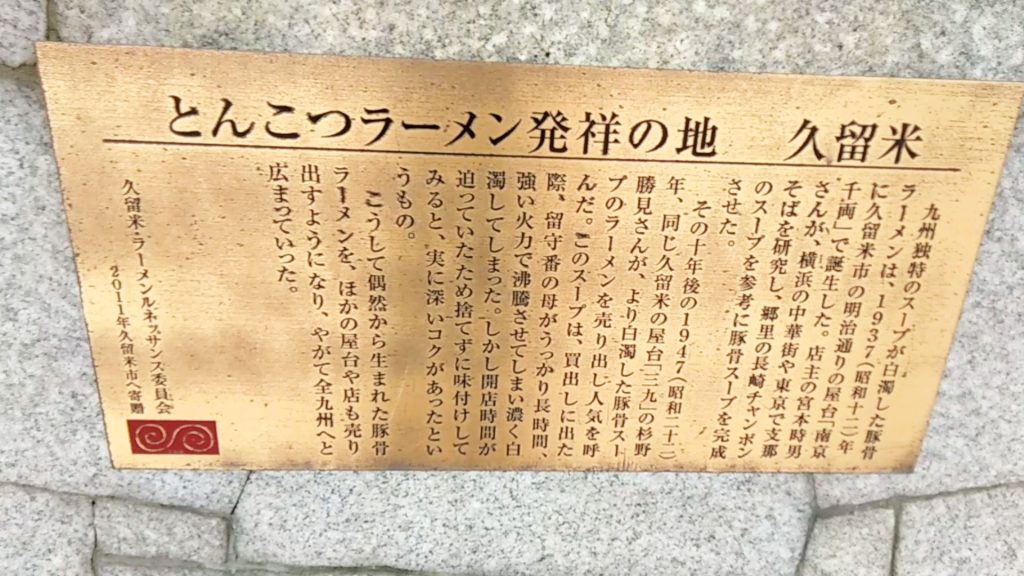 とんこつラーメン発祥の地　久留米
九州独特のスープが白濁した豚骨
ラーメンは、1937（昭和十二）年
に久留米市の明治通りの屋台「南京
千両」で誕生した。店主の宮本時男
さんが、横浜の中華街や東京で支那
そばを研究し、郷里の長崎チャンポン
のスープを参考に豚骨スープを完成
させた。
その十年後の1947（昭和二十二）
年、同じ久留米の屋台「三九」の杉野
勝見さんが、より白濁した豚骨スー
プのラーメンを売り出し人気を呼
んだ。このスープは、買出しに出た
際、留守番の母がうっかり長時間、
強い火力で沸騰させてしまい濃く白
濁してしまった。しかし開店時間が
迫っていたため捨てずに味付けして
みると、実に深いコクがあったとい
うもの。
こうして偶然から生まれた豚骨
ラーメンを、ほかの屋台や店も売り
出すようになり、やがて全九州へと
広まっていった。
久留米・ラーメンルネッサンス委員会
2011年久留米市へ寄贈